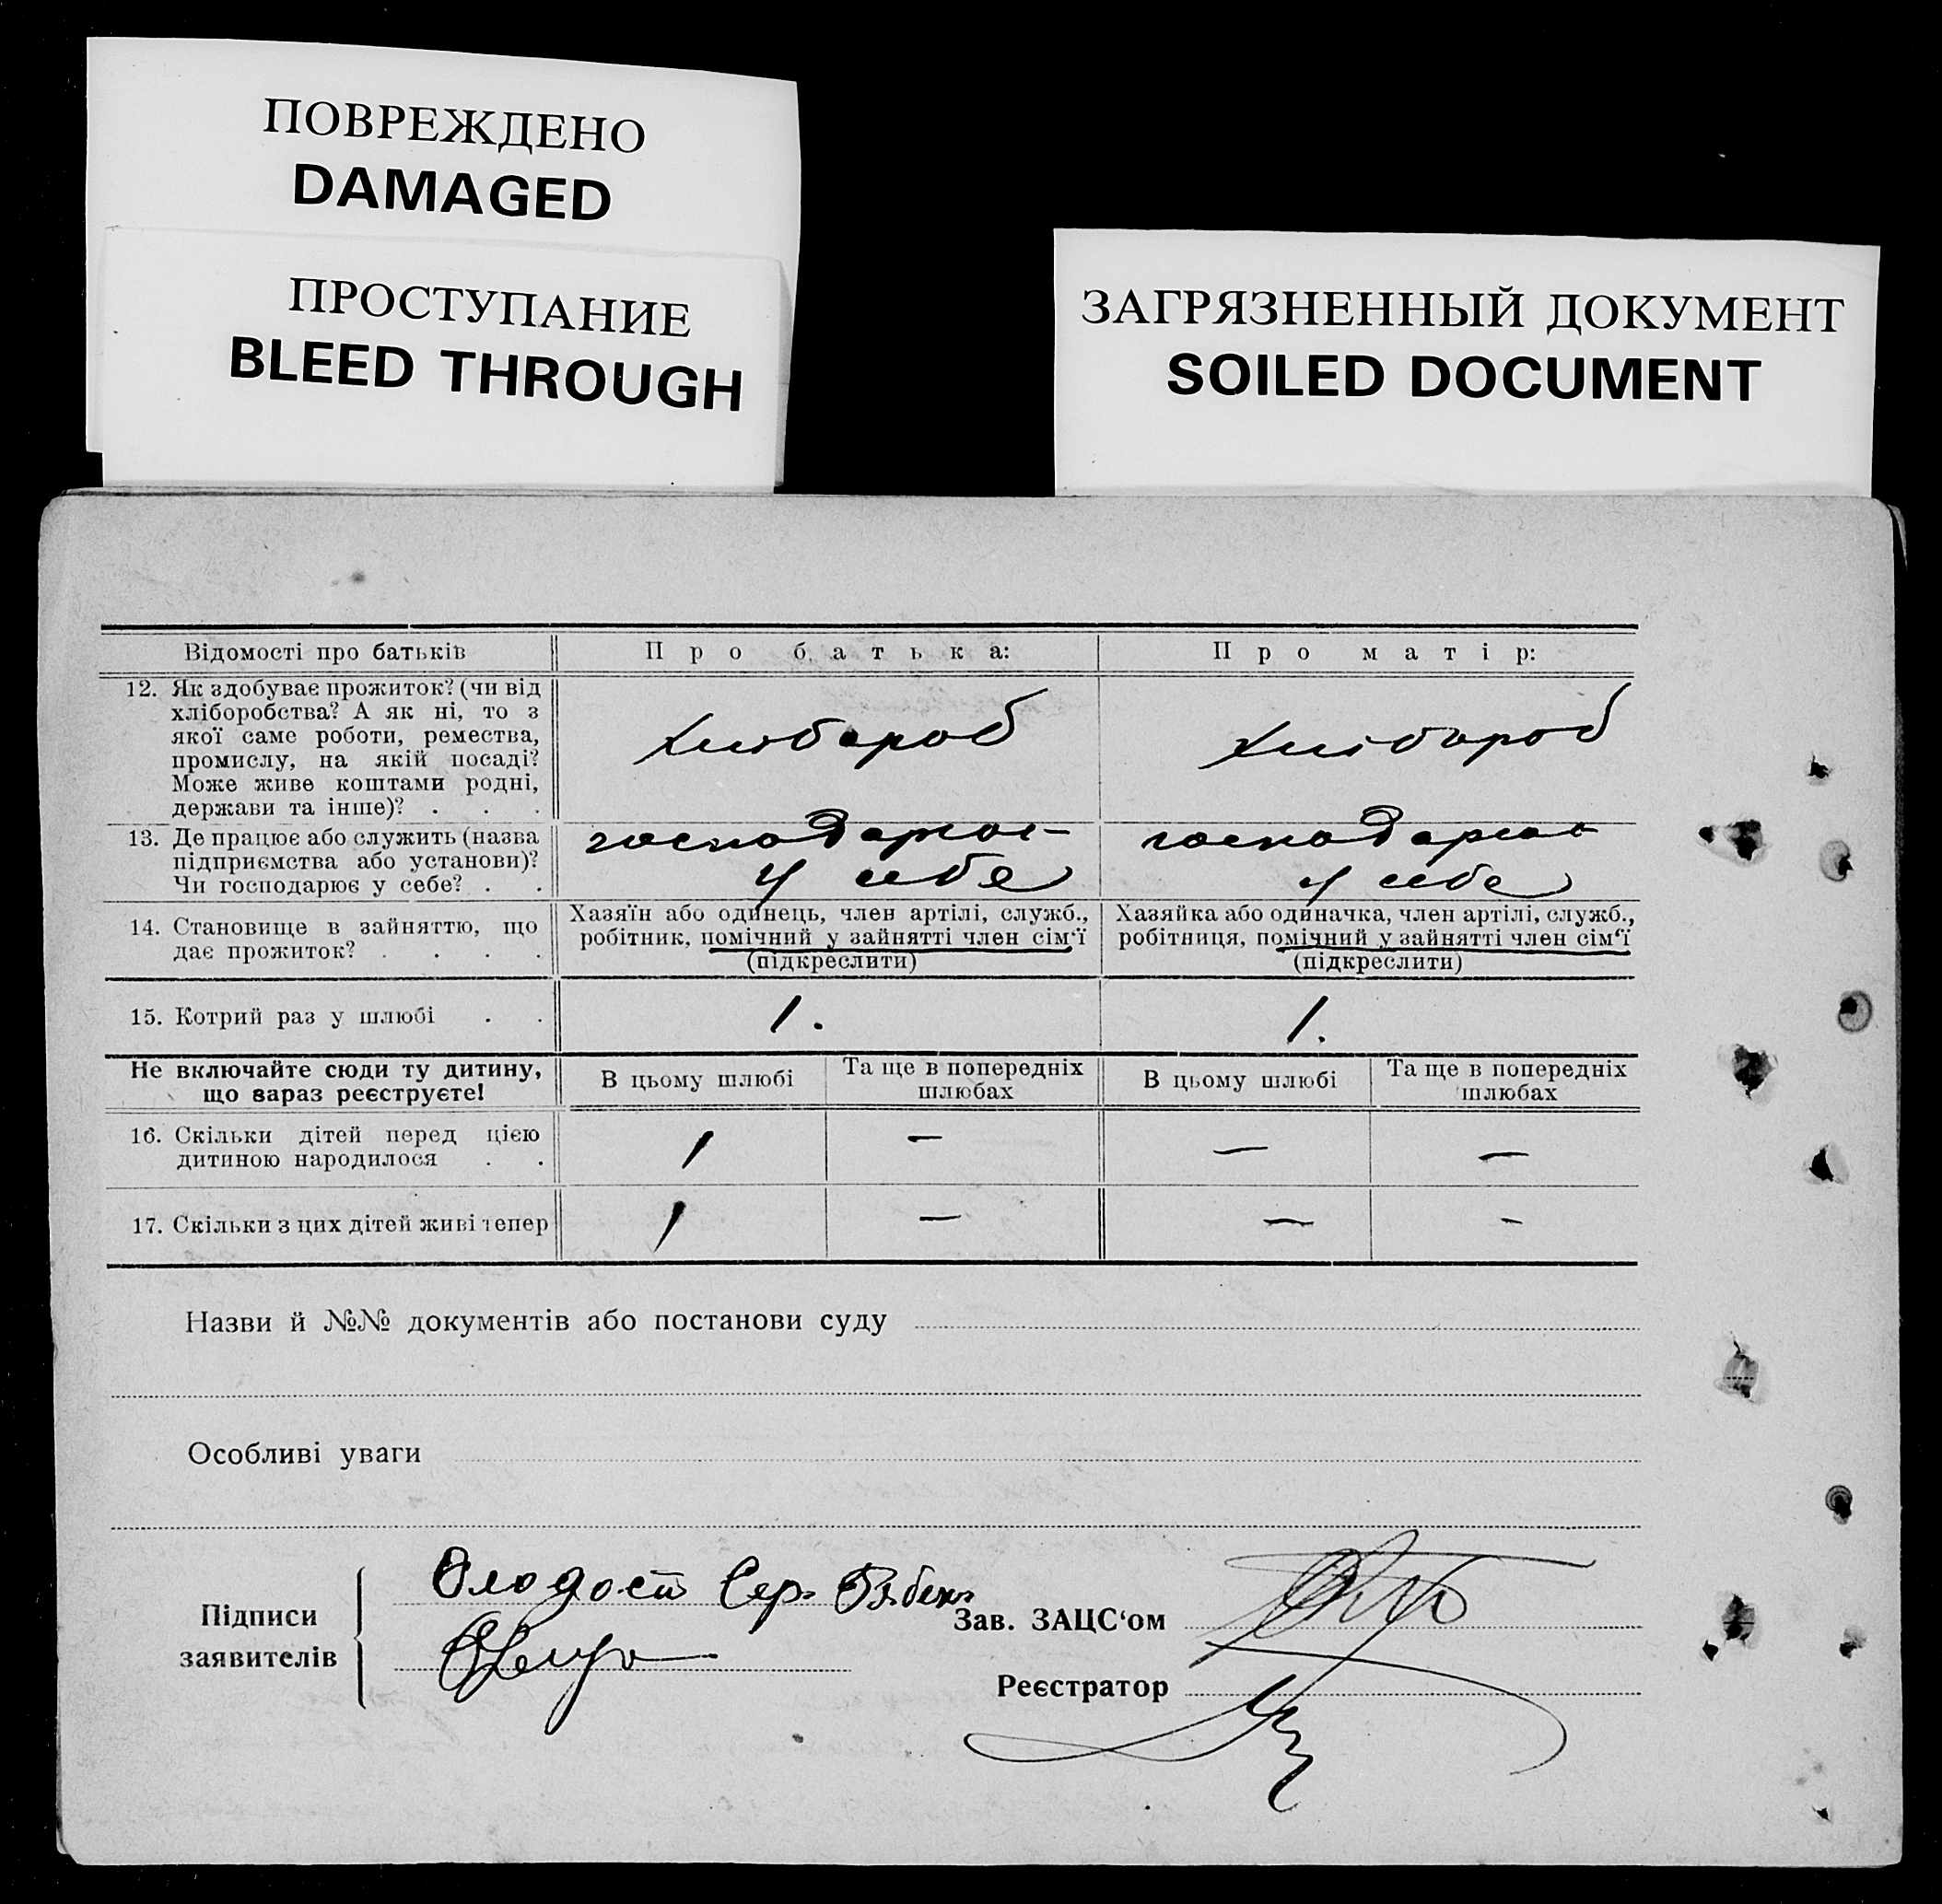 ПОВРЕЖДЕНО
DAMAGED
ПРОСТУПАНИЕ
BLEED THROUGH
ЗАГРЯЗНЕННЫЙ ДОКУМЕНТ
SOILED DOCUMENT
Відомості про батьків
Про батька:
Про матір:
12. Як здобуває прожиток? (чи від
хліборобства? А як ні, то з
якої саме роботи, ремества,
промислу, на якій посаді?
Може живе коштами родні,
держави та інше)? . . .
хлібороб
хлібороб
13. Де працює або служить (назва
підприємства або установи)?
Чи господарює у себе? . .
господарює
у себе
господарює
у себе
14. Становище в зайняттю, що
дає прожиток? . . . .
Хазяїн або одинець, член артілі, служб.,
робітник, помічний у зайнятті член сім‘ї
(підкреслити)
Хазяйка або одиначка, член артілі, служб.,
робітниця, помічний у зайнятті член сім‘ї
(підкреслити)
15. Котрий раз у шлюбі . .
1.
1.
Не включайте сюди ту дитину,
що зараз реєструєте!
В цьому шлюбі
Та ще в попередніх
шлюбах
В цьому шлюбі
Та ще в попередніх
шлюбах
16. Скільки дітей перед цією
дитиною народилося . .
1 — — —
17. Скільки з цих дітей живі тепер
1 — — -
Назви й №№ документів або постанови суду
Особливі уваги
Підписи
заявителів
Зав. ЗАЦС‘ом
Реєстратор